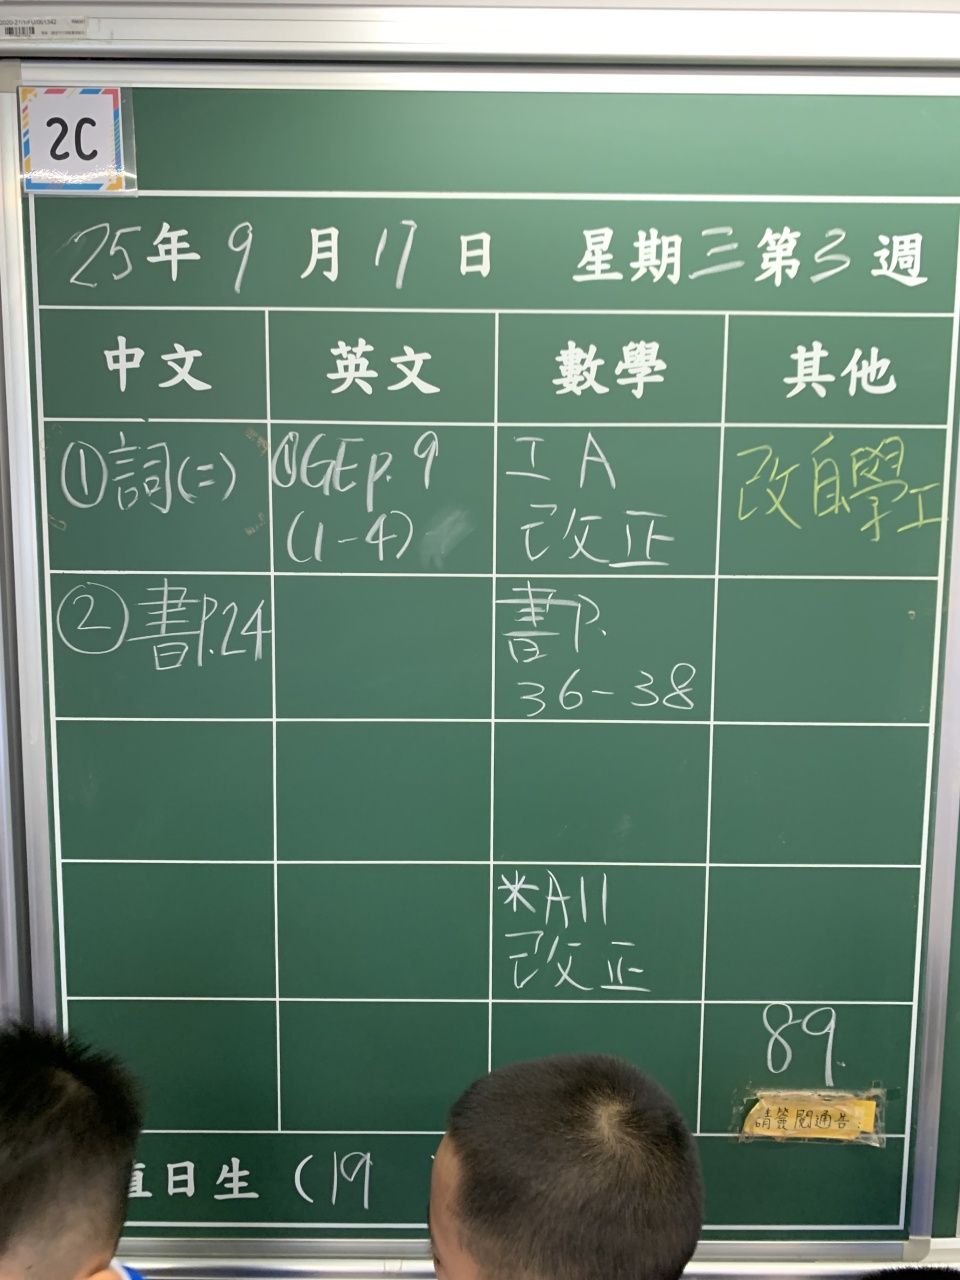 2C
25年9月17日 星期三第3週
中文 英文 數學 其他
①詞(二)
①GE p.9
(1-4)
工A
改正
改自學工
②書P.24
書P.
36-38
*A11
改正
89
請簽閱通告
值日生(19